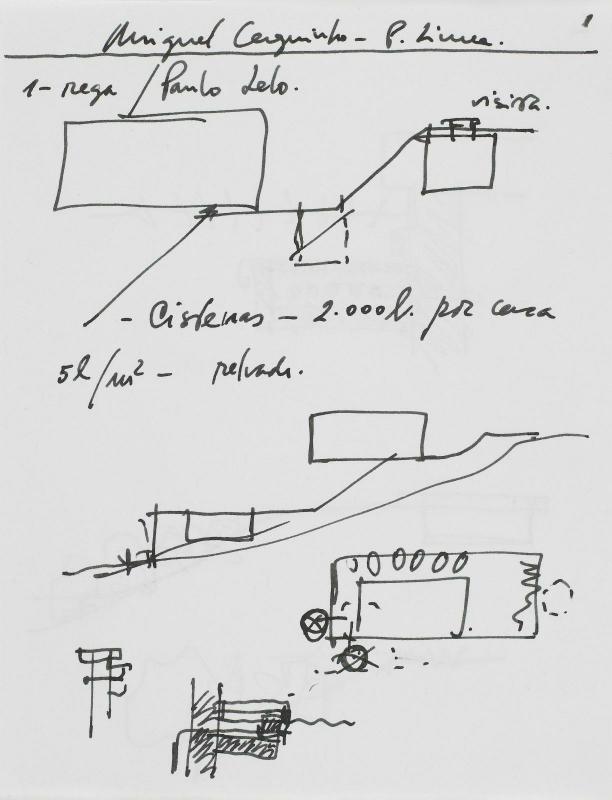 Miguel Cerquinho - P. Lima.
1- rega / Paulo Lelo.
visita.
- Cisternas - 2.000l. por casa
5l/m² - relvado.